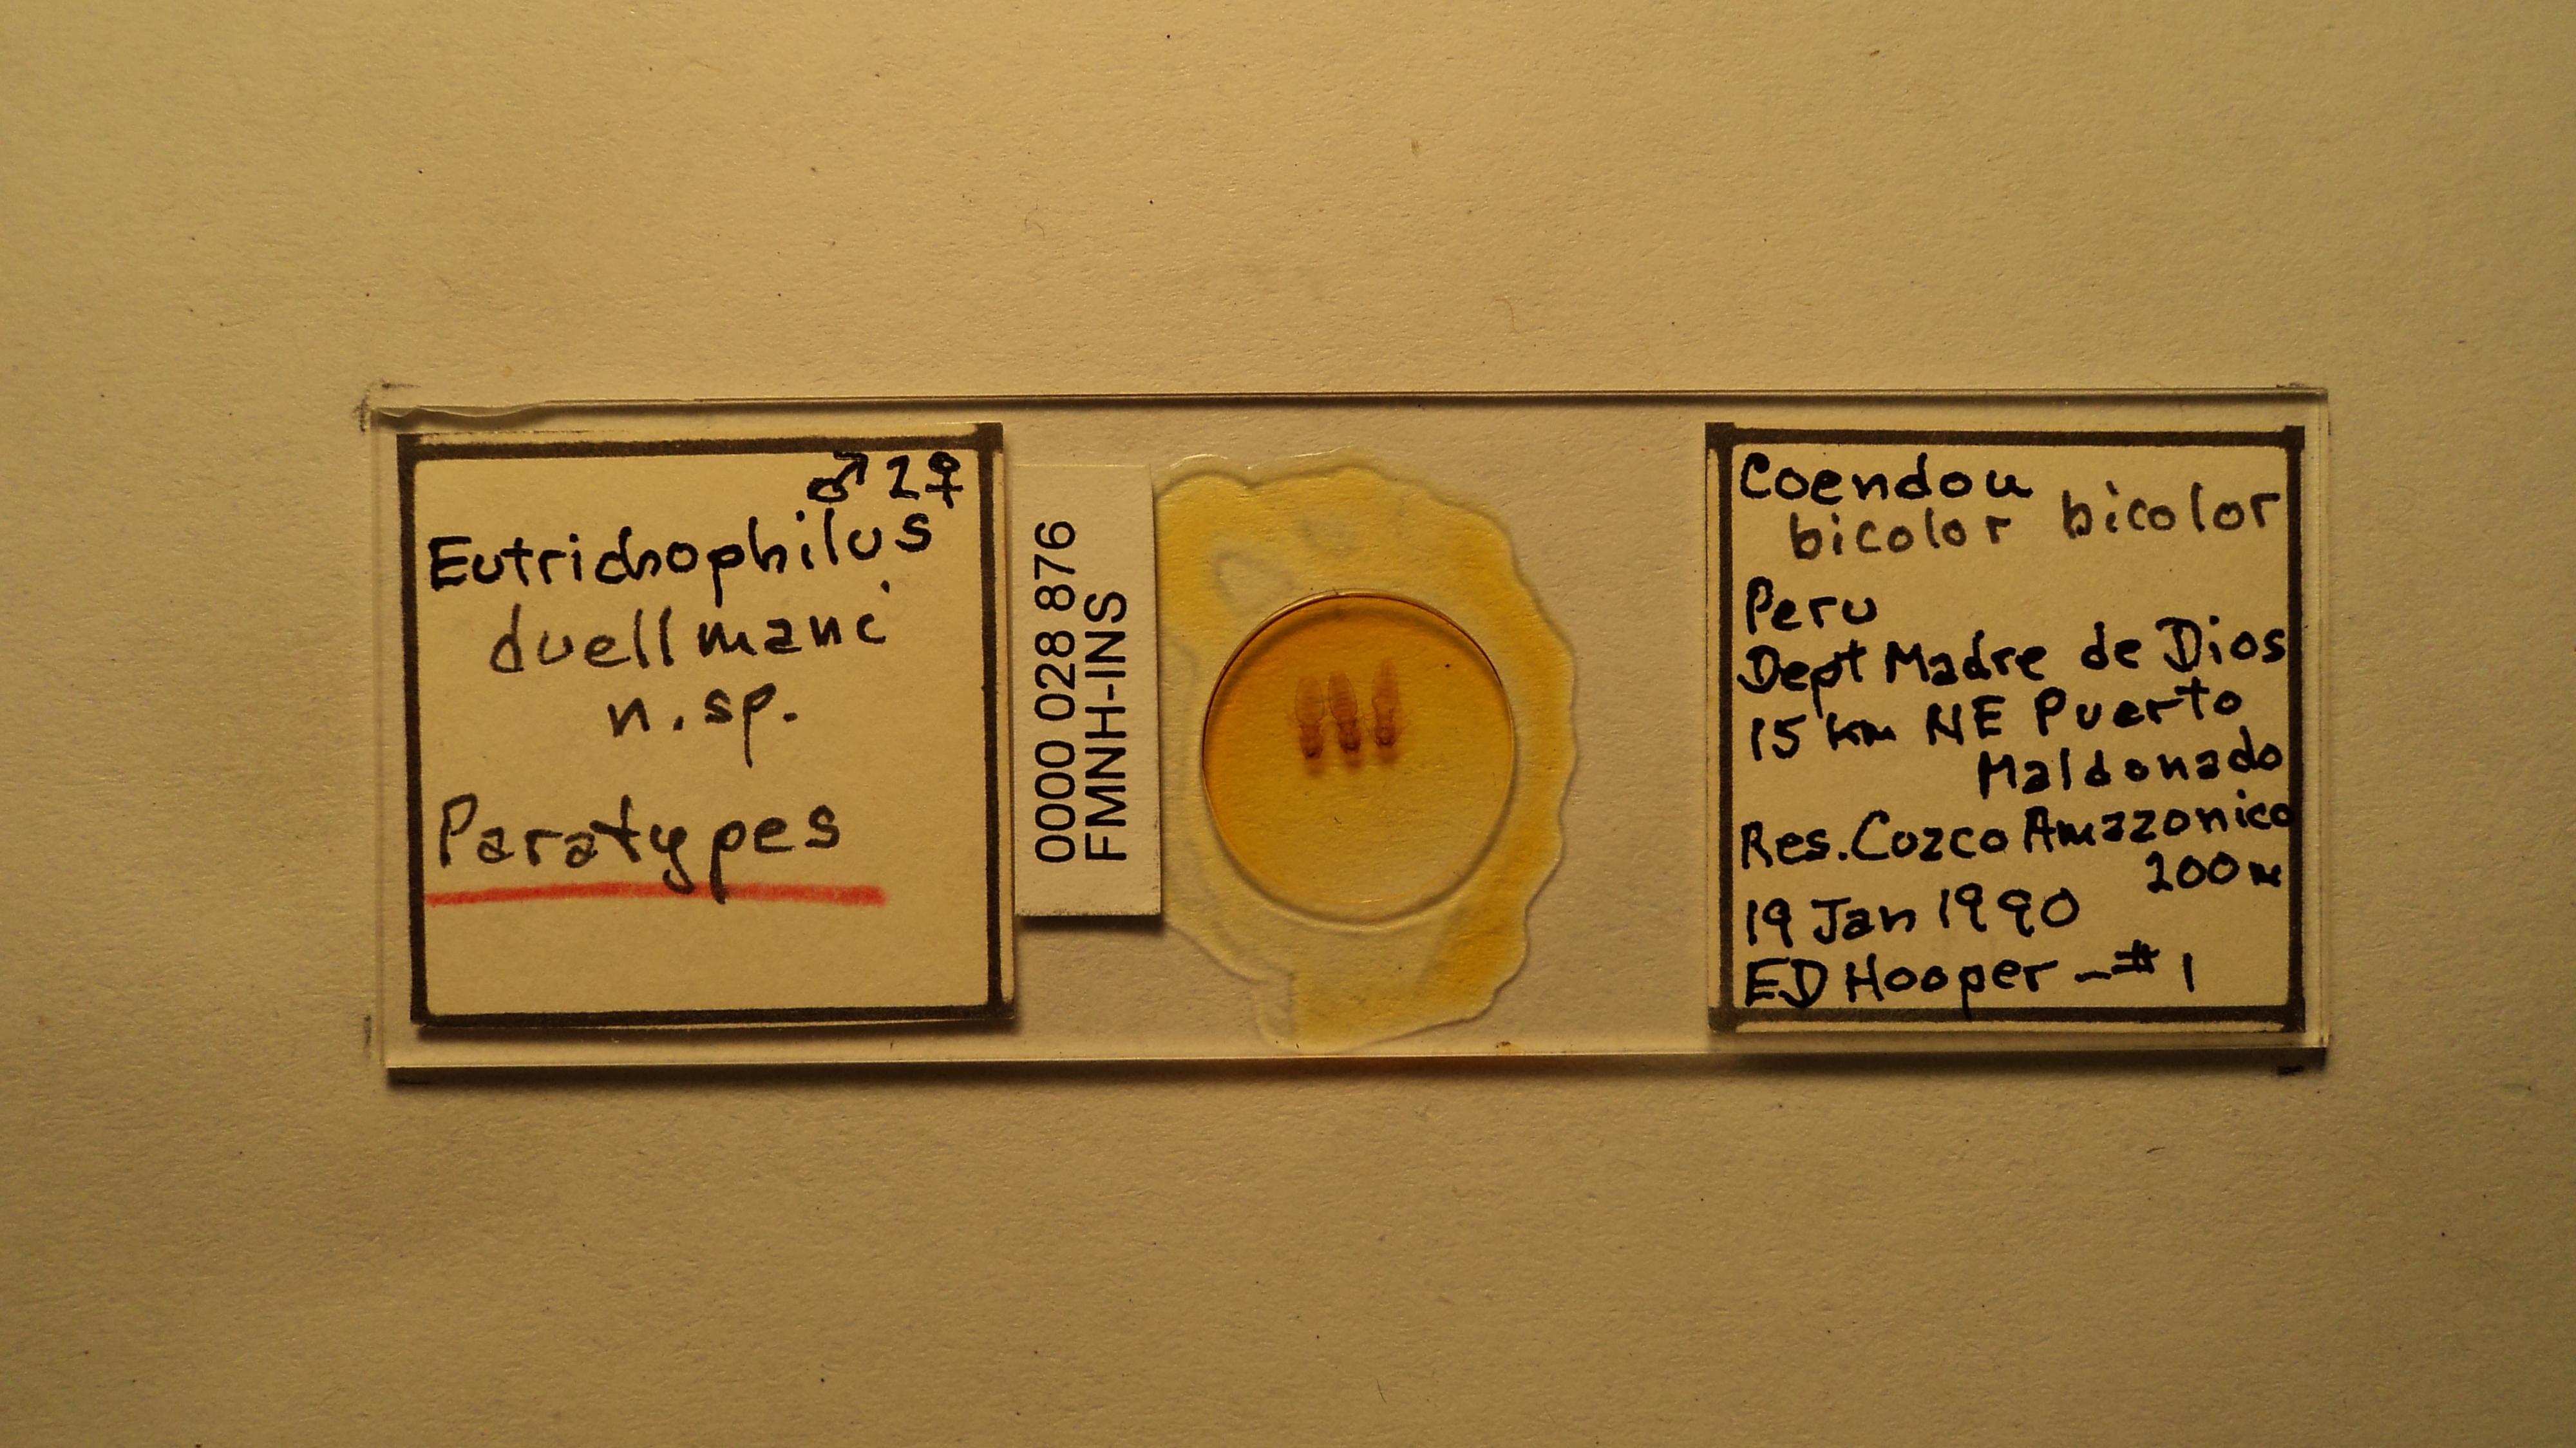 ♂ 2♀
Eutrichophilus
duellmani
n. sp.
Paratypes
0000 028 876
FMNH-INS
Coendou
bicolor bicolor
Peru
Dept Madre de Dios
15 km NE Puerto
Maldonado
Res. Cuzco Amazonico
200m
19 Jan 1990
ED Hooper -#1